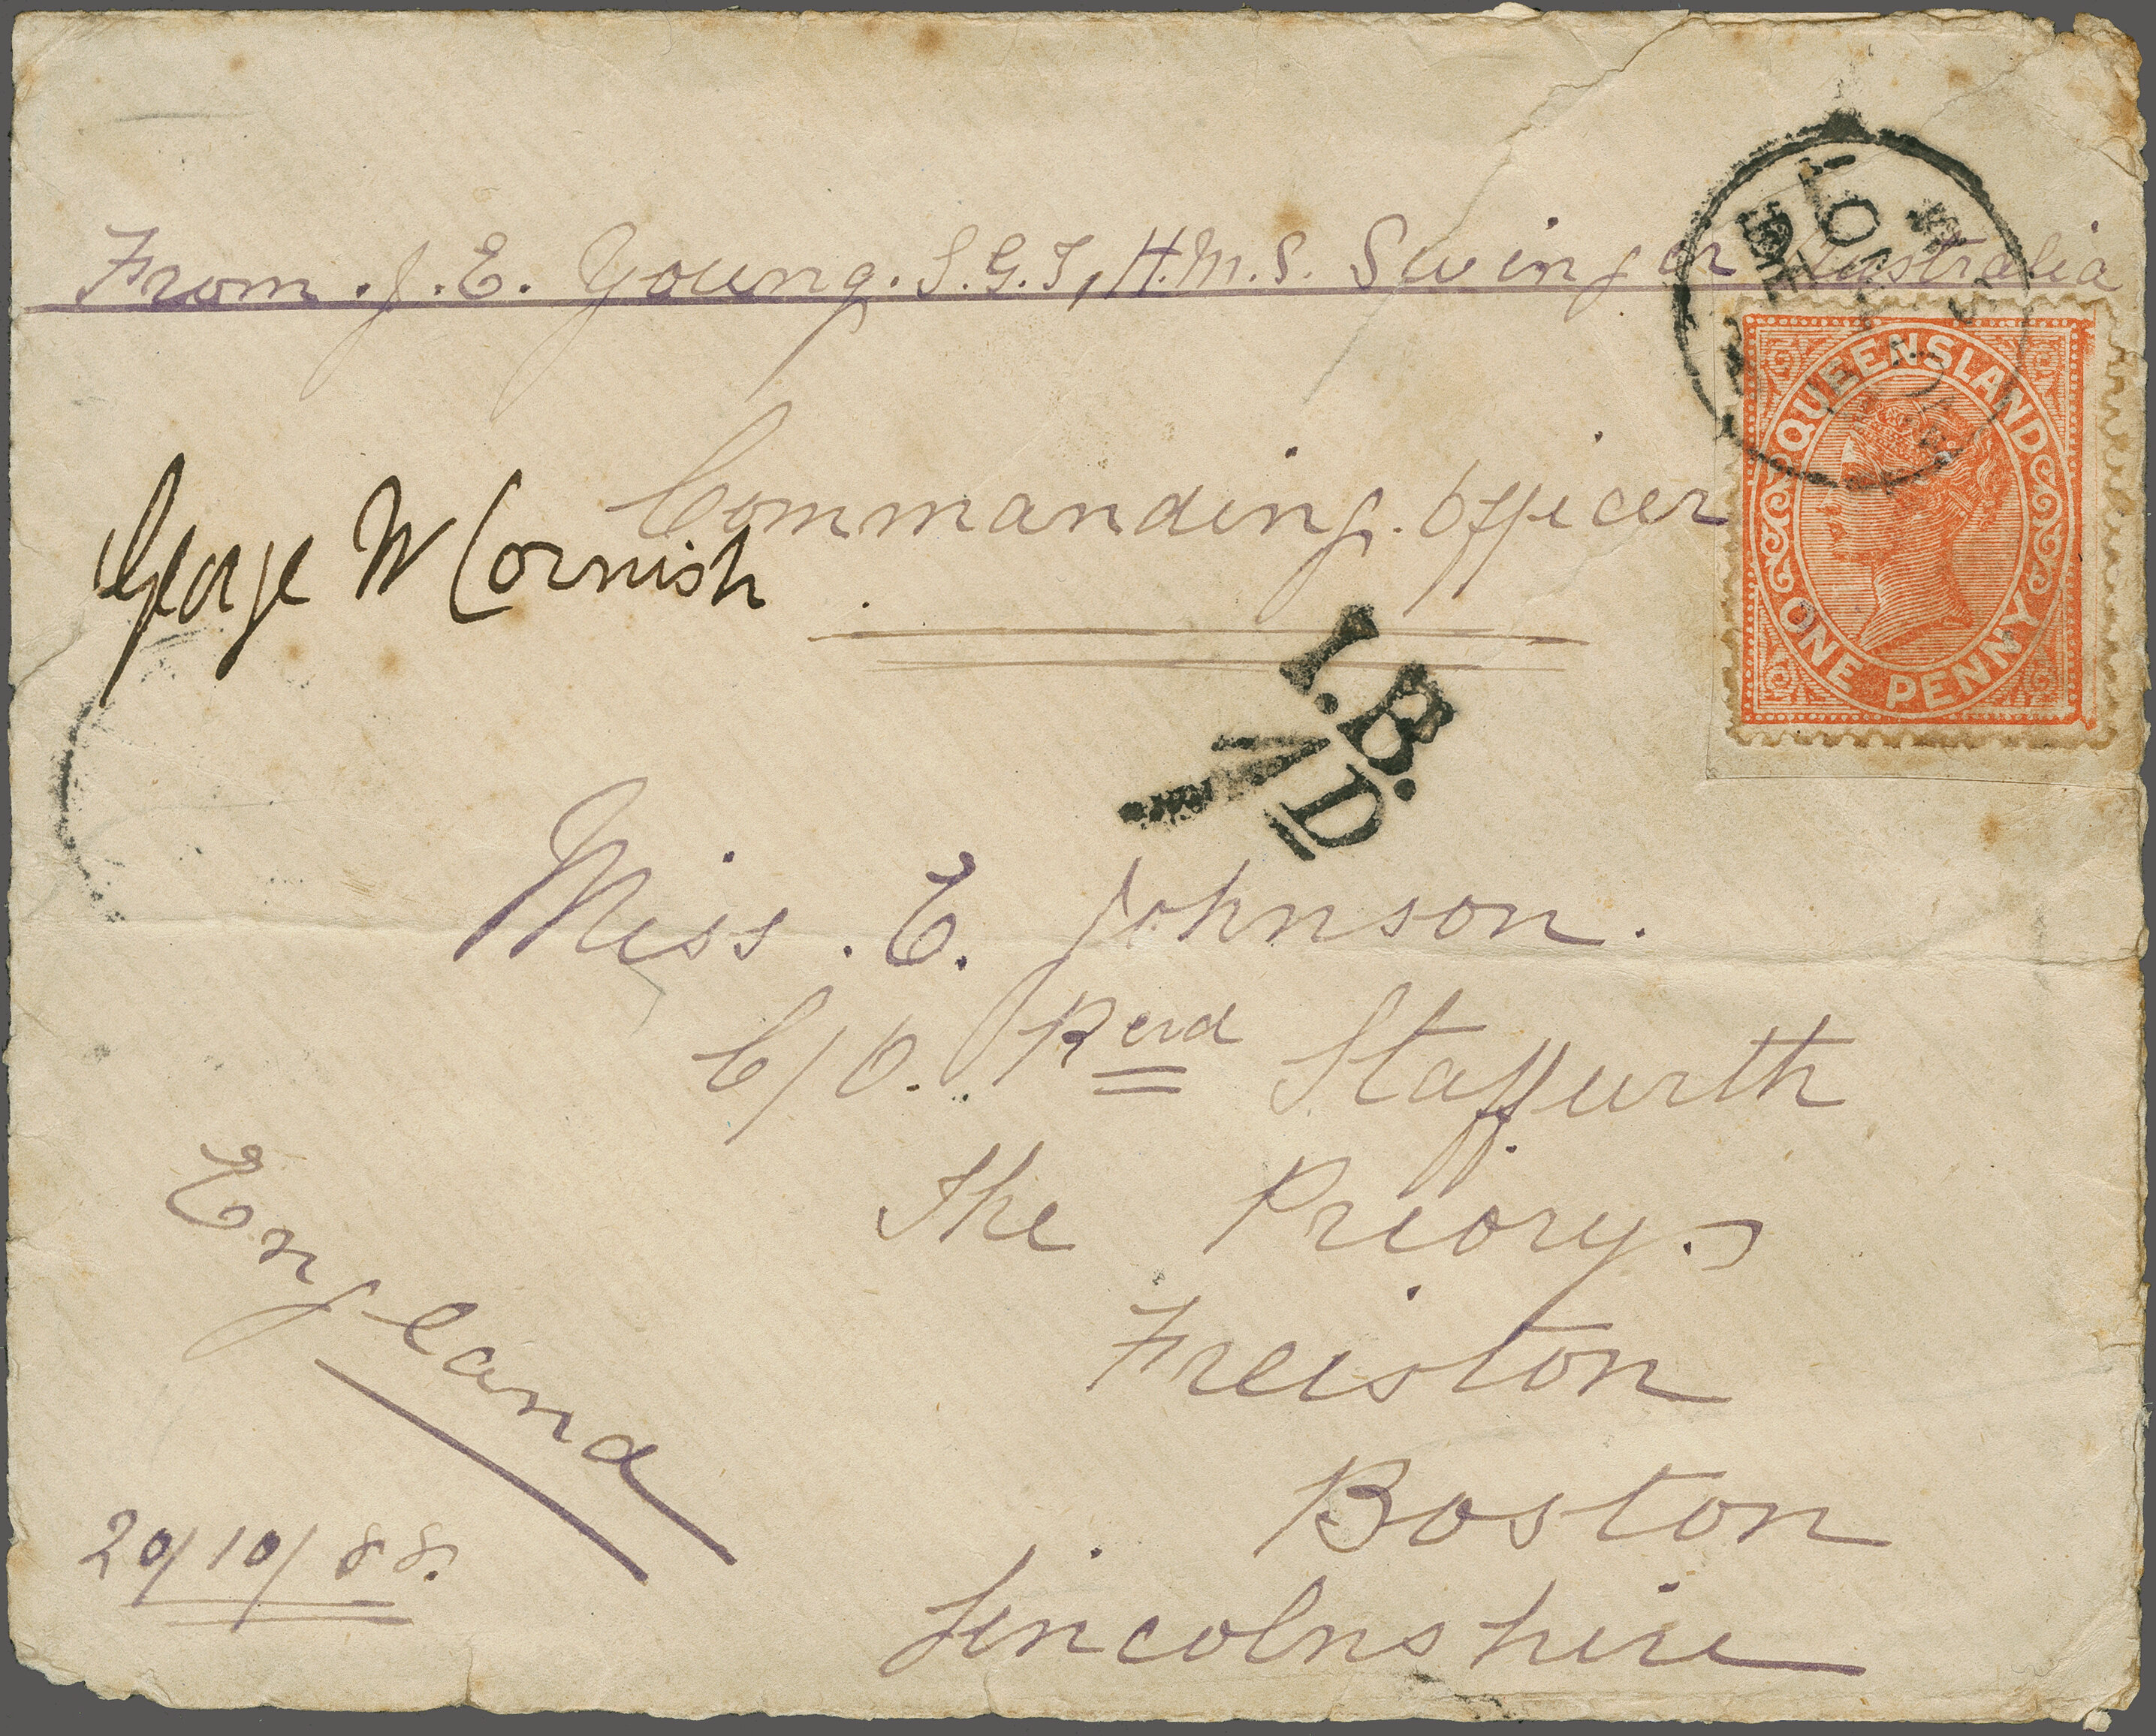 From. J. E. Young. S.G.T, H.M.S. Swinger Australia
Commanding. Officer
George W Cornish
QUEENSLAND
ONE PENNY
I.B.
1D
Miss. E. Johnson.
C/O. Revd Staffurth
The Priory.
Freiston
Boston
Lincolnshire
England
20/10/88.